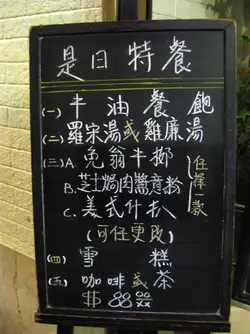 是日特餐
(一) 牛油餐飽
(二) 羅宋湯或雞雜湯
(三) A. 免翁牛柳
B. 芝士焗肉醬意粉
C. 美式什扒
任擇一款
(可任更改)
(四) 雪糕
(五) 咖啡或茶
$ 88